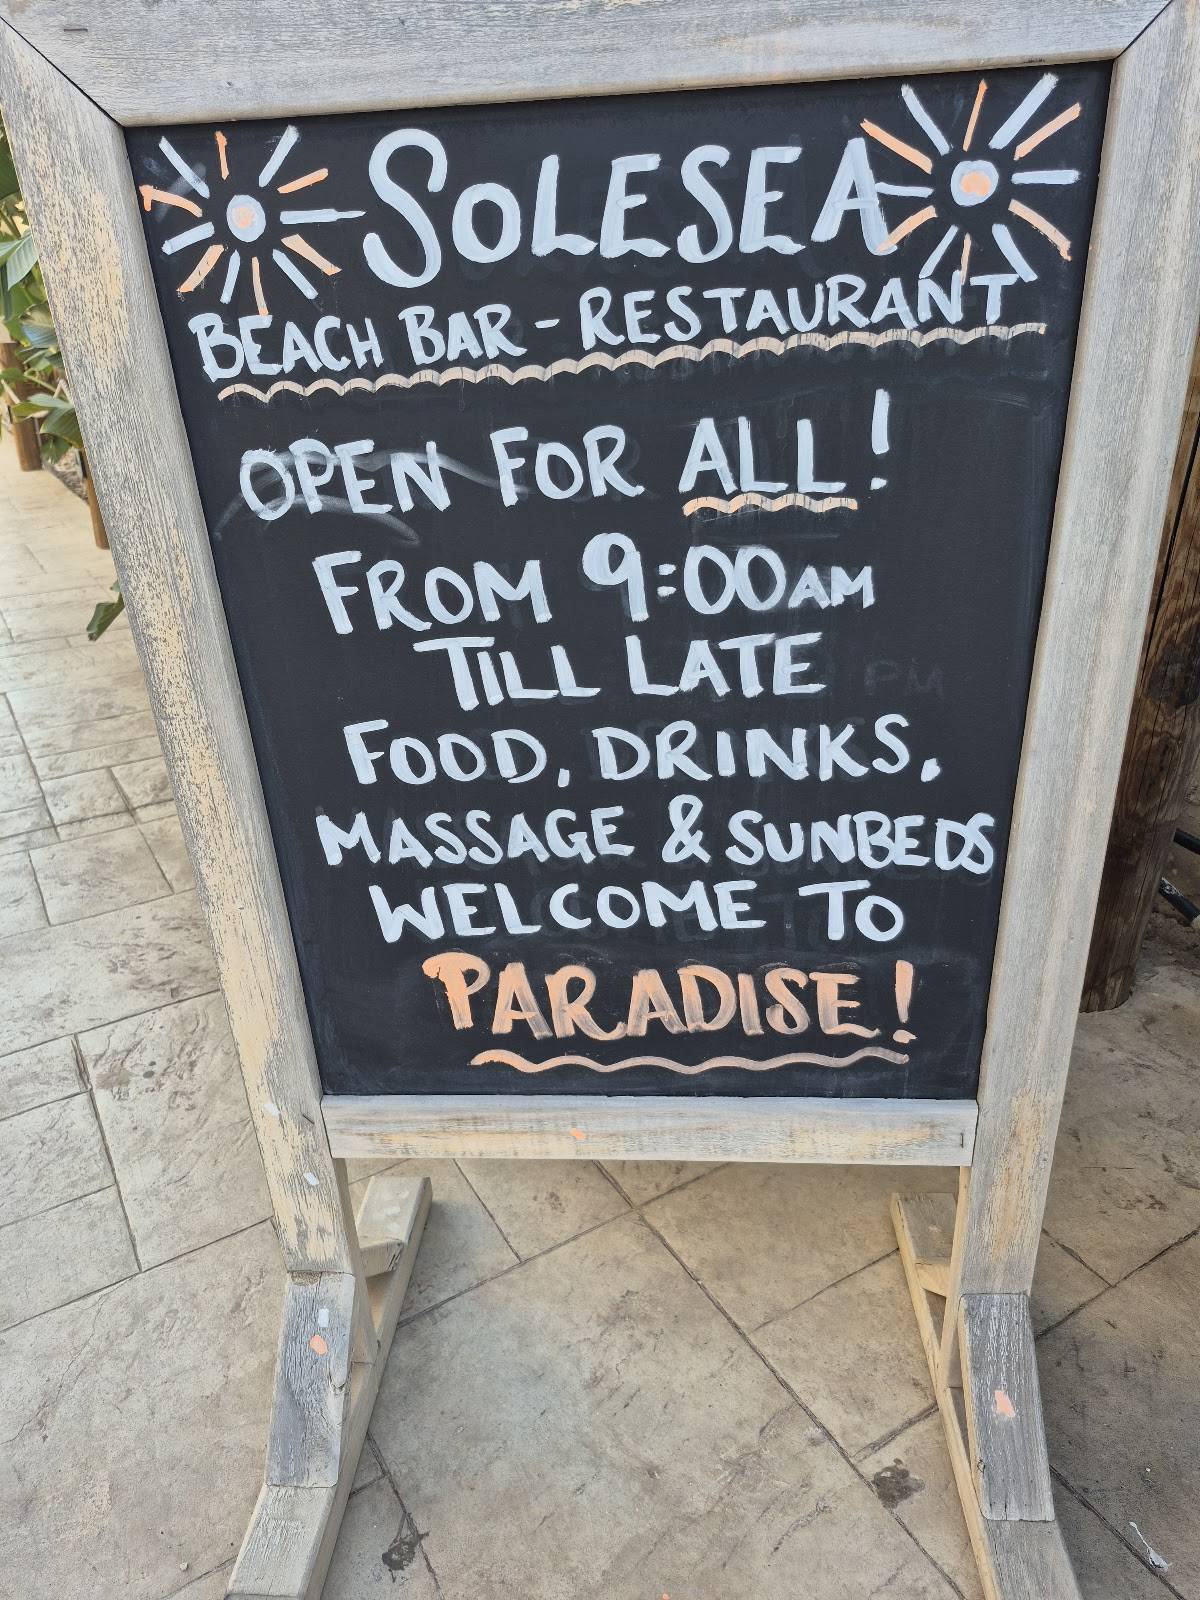 SOLESEA
BEACH BAR - RESTAURANT
OPEN FOR ALL!
FROM 9:00AM
TILL LATE
FOOD, DRINKS,
MASSAGE & SUNBEDS
WELCOME TO
PARADISE!